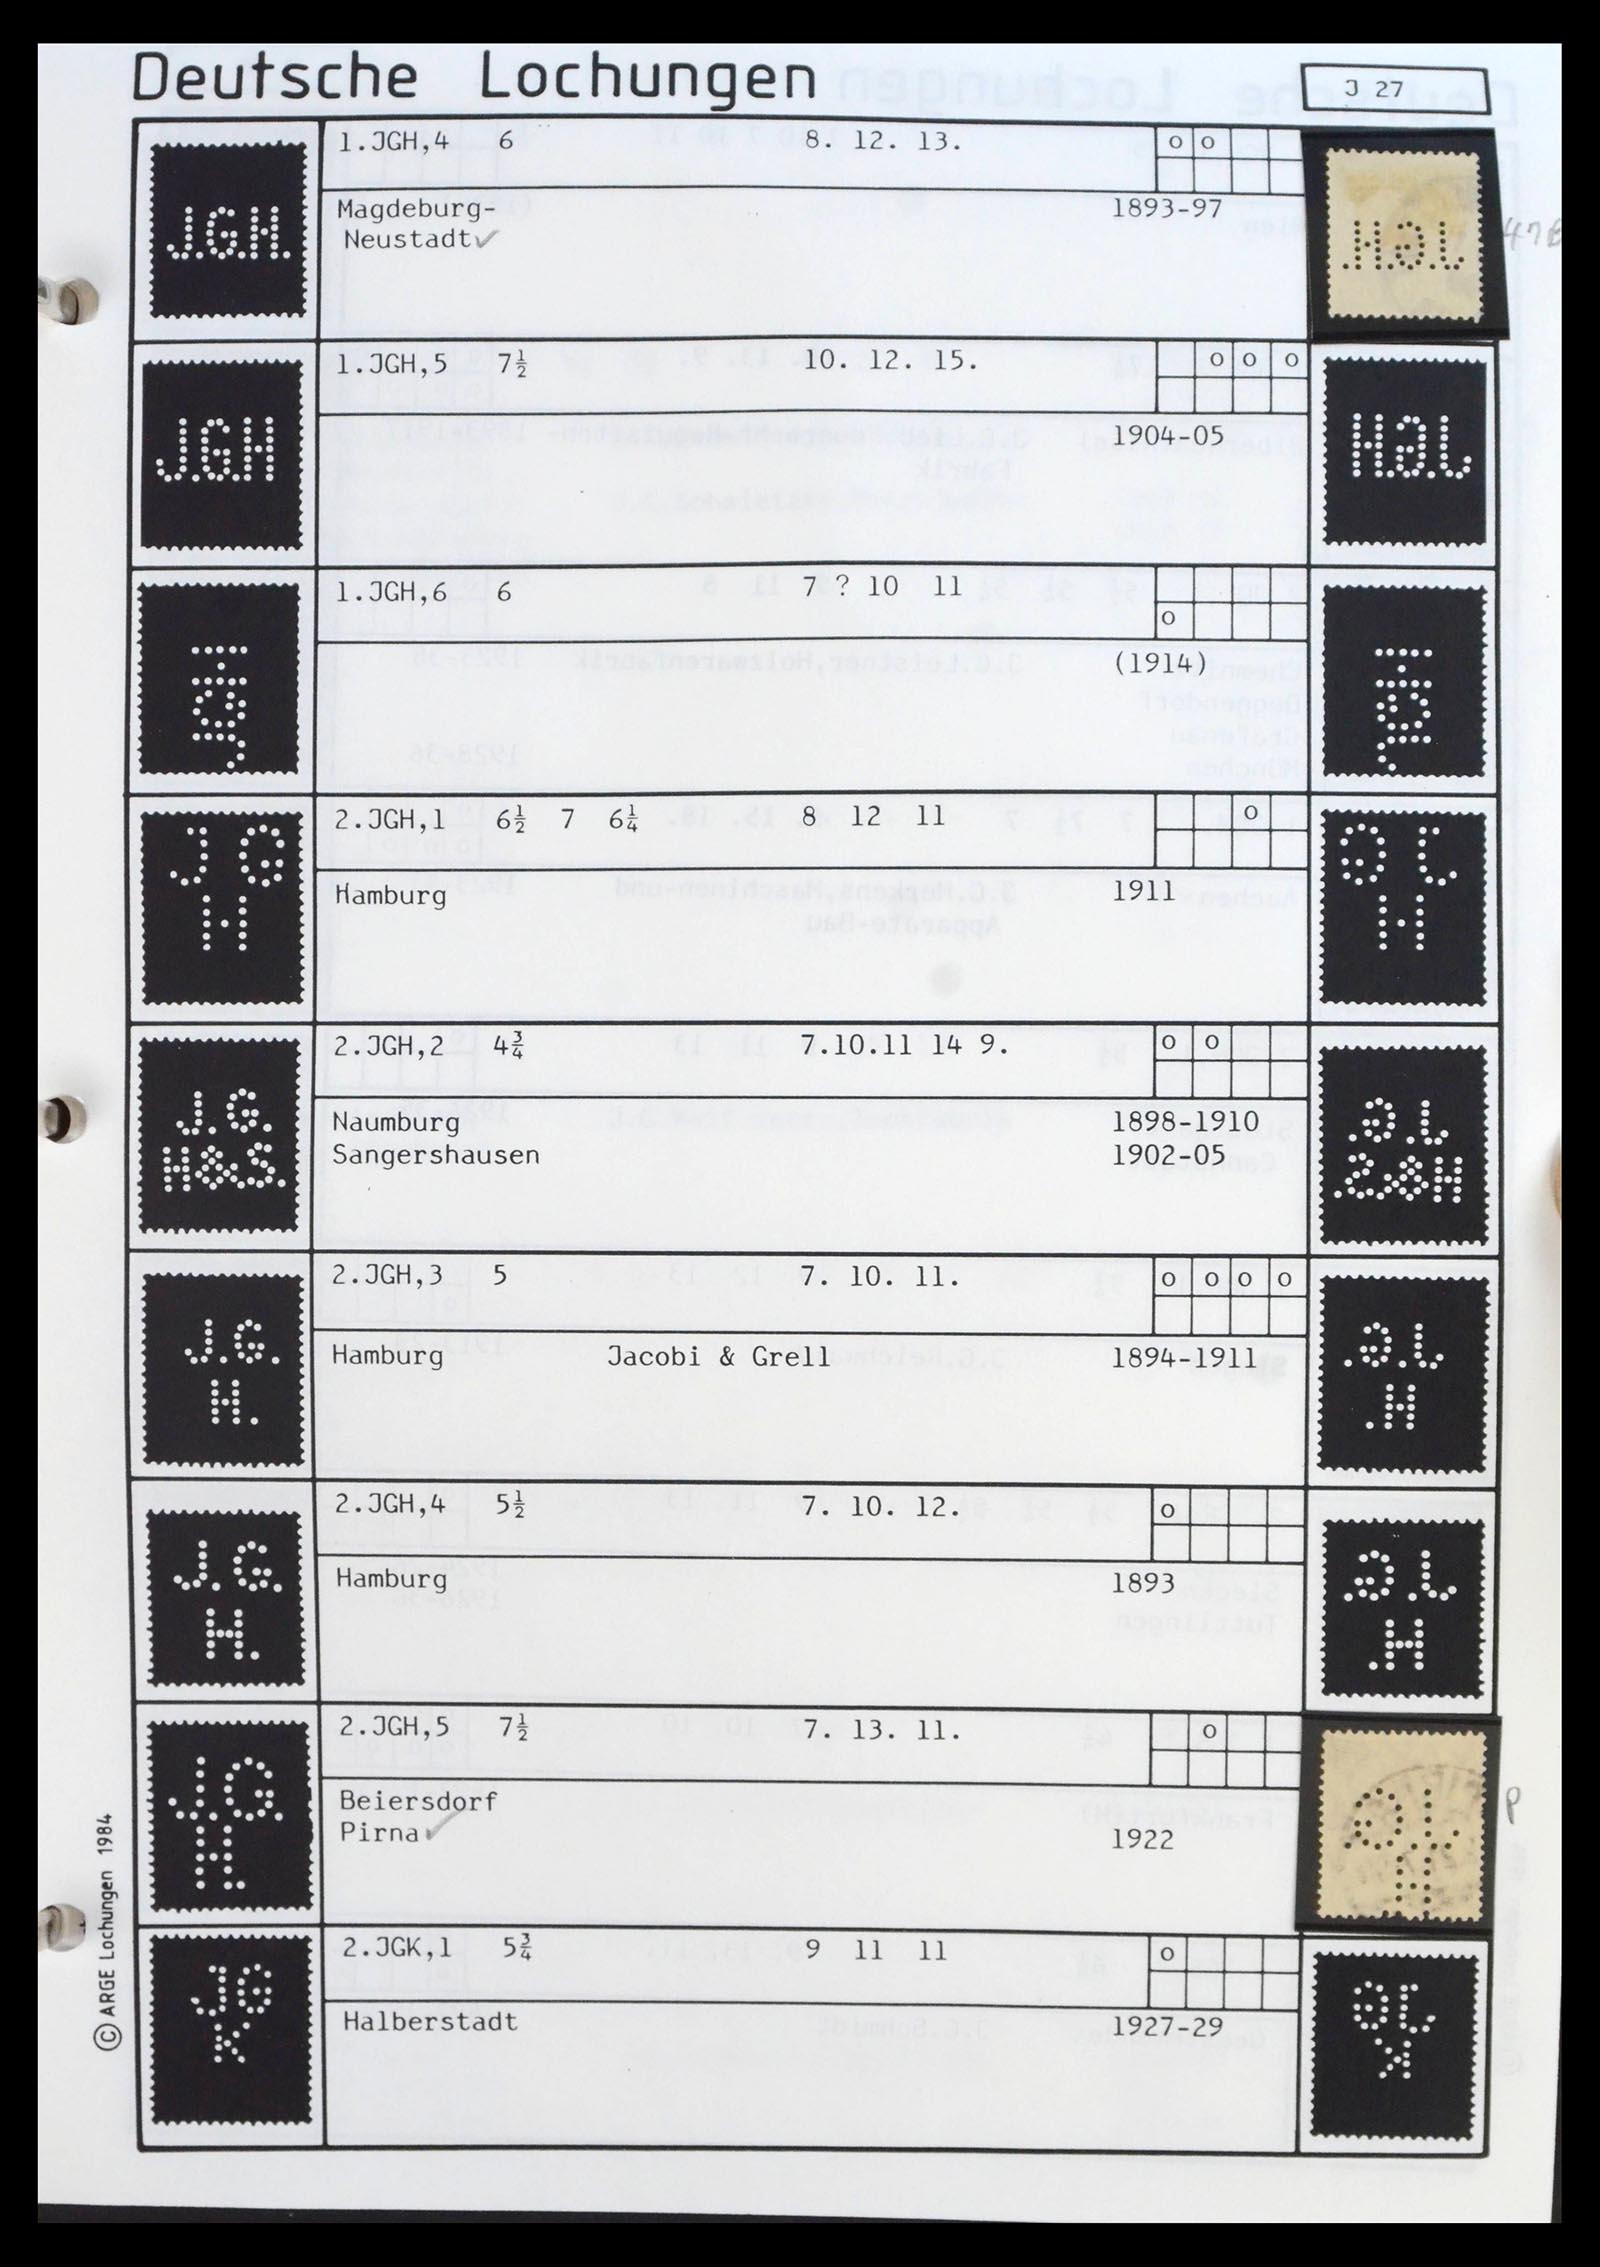 Deutsche Lochungen
J 27
J.G.H.
1.JGH,4 6 8. 12. 13. o o
Magdeburg- 1893-97
Neustadt ✓
J.G.H.
J.G.H
1.JGH,5 7½ 10. 12. 15. o o o
1904-05
J.G.H
JGH
1.JGH,6 6 7 ? 10 11
o
(1914)
JGH
J G
H
2.JGH,1 6½ 7 6¼ 8 12 11 o
Hamburg 1911
J G
H
J.G.
H&S.
2.JGH,2 4¾ 7.10.11 14 9. o o
Naumburg 1898-1910
Sangershausen 1902-05
J.G.
H&S.
J.G.
H.
2.JGH,3 5 7. 10. 11. o o o o
Hamburg Jacobi & Grell 1894-1911
J.G.
H.
J.G.
H.
2.JGH,4 5½ 7. 10. 12. o
Hamburg 1893
J.G.
H.
J.G.
H.
2.JGH,5 7½ 7. 13. 11. o
Beiersdorf
Pirna ✓ 1922
P
JG
K
2.JGK,1 5¾ 9 11 11 o
Halberstadt 1927-29
JG
K
© ARGE Lochungen 1984